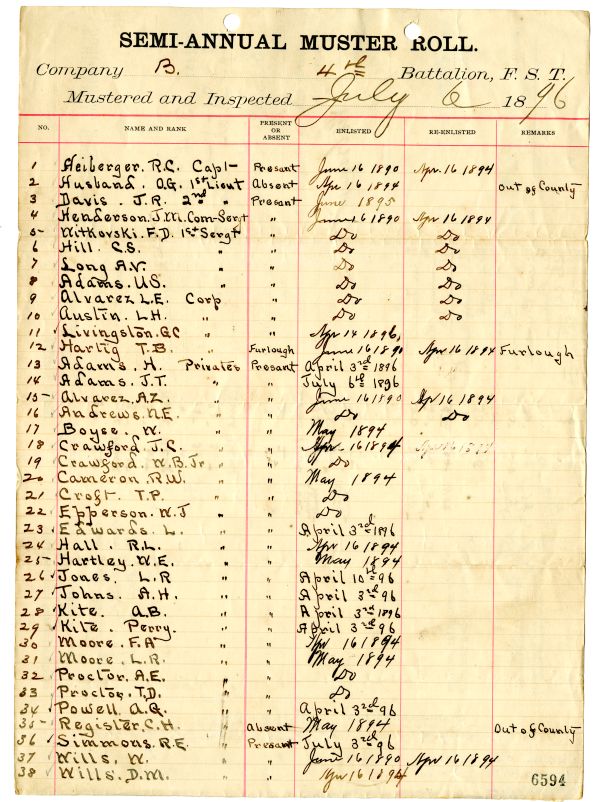 SEMI-ANNUAL MUSTER ROLL.
Company B. 4th Battalion, F. S. T.
Mustered and Inspected July 6 1896
NO. NAME AND RANK PRESENT OR ABSENT ENLISTED RE-ENLISTED REMARKS
1 Heiberger. R.C. Capt- Presant June 16 1890 Apr. 16 1894
2 Husband. O.G. 1st Lieut Absent Apr 16 1894 Out of County
3 Davis. J.R. 2nd " Presant June 1895
4 Henderson. J.M. Com-Sergt " June 16 1890 Apr. 16 1894
5- Witkovski. F.D. 1st Sergt " Do Do
6 Hill. C.S. " " Do Do
7 Long A.V. " " Do Do
8 Adams. U.S. " " Do Do
9 Alvarez L.E. Corp " Do Do
10 Austin. L.H. " " Do Do
11 Livingston. G.C " " Apr 14 1896,
12 Hartig T.B. " Furlough June 16 1890 Apr 16 1894 Furlough
13 Adams. H. Privates Presant April 3rd 1896
14 Adams. J.T. " " July 6th 1896
15- Alvarez. A.Z. " " June 16 1890 Apr 16 1894
16 Andrews. N.E. " " Do Do
17 Boyse. W. " " May 1894
18 Crawford J.C. " " Apr. 16 1894 Apr 16 1894
19 Crawford. W.B. Jr. " " Do
20 Cameron. R.W. " " May 1894
21 Croft. T.P. " " Do
22 Epperson. W.J " " Do
23 Edwards. L. " " April 3rd 1896
24 Hall. R.L. " " Apr 16 1894
25- Hartley. W.E. " " May 1894
26 Jones. L.R " " April 10th 96
27 Johns. A.H. " " April 3rd 96
28 Kite. A.B. " " April 3rd 1896
29 Kite. Perry. " " April 3rd 96
30 Moore. F.A " " Apr 16 1894
31 Moore. L.R. " " May 1894
32 Proctor. A.E. " " Do
33 Proctor. T.D. " " Do
34 Powell. A.G. " " April 3rd 96
35- Register. C.H. " Absent May 1894 Out of County
36 Simmons. R.E. " Presant July 3rd 96
37 Wills. W. " " June 16 1890 Apr 16 1894
38 Wills. D.M. " " Apr 16 1894
6594